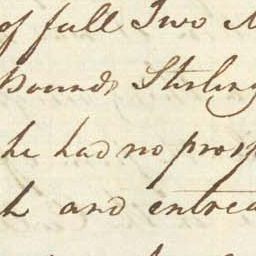 of full Two
Pounds Sterling
he had no prosp
h and entrea